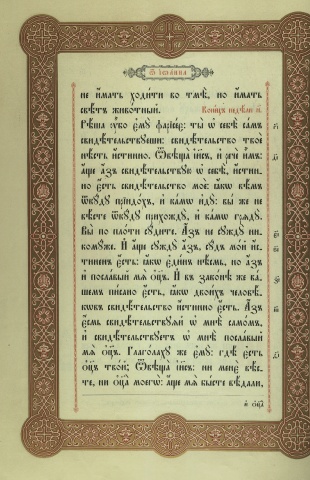 Ѿ Іѡанна
не и҆́мать ходи́ти во тмѣ̀, но и҆́мать
свѣ́тъ живо́тный. Коне́цъ недѣ́ли и҃.
Рѣ́ша ᲂу҆̀бо є҆мꙋ̀ фарїсе́є: ты̀ ѡ҆ себѣ̀ са́мъ
свидѣ́тельствꙋеши: свидѣ́тельство твоѐ
нѣ́сть и҆́стинно. Ѿвѣща̀ і҆и҃съ, и҆ речѐ и҆̀мъ:
а҆́ще а҆́зъ свидѣ́тельствꙋю ѡ҆ себѣ̀, и҆́стин-
но є҆́сть свидѣ́тельство моѐ: ꙗ҆́кѡ вѣ́мъ
ѿкꙋ́дꙋ прїидо́хъ, и҆ ка́мѡ и҆дꙋ̀: вы́ же не
вѣ́сте ѿкꙋ́дꙋ прихождꙋ̀, и҆ ка́мѡ грѧдꙋ̀.
Вы̀ по пло́ти сꙋ́дите. А҆́зъ не сꙋждꙋ̀ ни-
комꙋ́же. И҆ а҆́ще сꙋждꙋ̀ а҆́зъ, сꙋ́дъ мо́й и҆́с-
тиненъ є҆́сть: ꙗ҆́кѡ є҆ди́нъ нѣ́смь, но а҆́зъ
и҆ посла́вый мѧ̀ ѻ҆ц҃ъ. И҆ въ зако́нѣ же ва́-
шемъ пи́сано є҆́сть, ꙗ҆́кѡ двои́хъ человѣ̑-
кѡвъ свидѣ́тельство и҆́стинно є҆́сть. А҆́зъ
є҆́смь свидѣ́тельствꙋѧй ѡ҆ мнѣ̀ само́мъ,
и҆ свидѣ́тельствꙋетъ ѡ҆ мнѣ̀ посла́вый
мѧ̀ ѻ҆ц҃ъ. Глаго́лахꙋ же є҆мꙋ̀: гдѣ̀ є҆́сть
ѻ҆ц҃ъ тво́й; Ѿвѣща̀ і҆и҃съ: ни менѐ вѣ́с-
те, ни ѻ҆ц҃а̀ моегѡ̀: а҆́ще мѧ̀ бы́сте вѣ́дали,
и҆ ѻ҆ц҃а̀